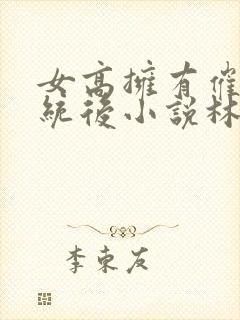 女高擁有催
統後小說林
李東友